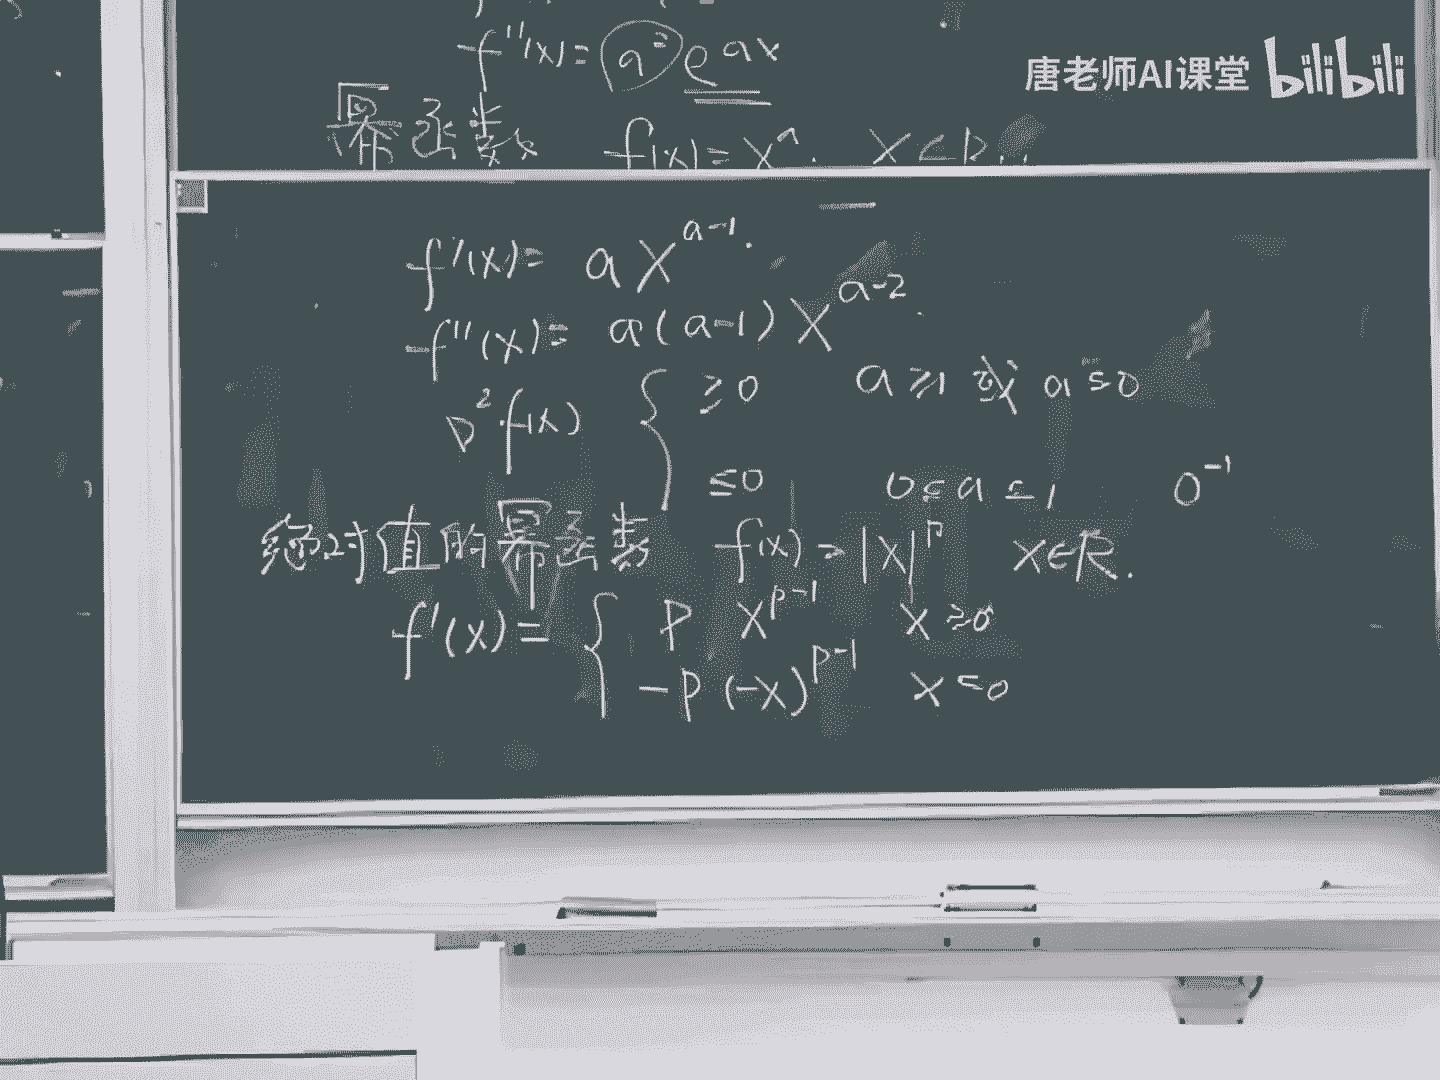 f''(x) = a² e^{ax}
唐老师AI课堂 bilibili
幂函数 f(x) = x^a. x ∈ R₊₊
f'(x) = a x^{a-1}.
f''(x) = a(a-1) x^{a-2}.
D² f(x) { ≥0 a≥1 或 a≤0
≤0 0≤a≤1 0^{-1}
绝对值的幂函数 f(x) = |x|^p x∈R.
f'(x) = { p x^{p-1} x≥0
-p (-x)^{p-1} x≤0